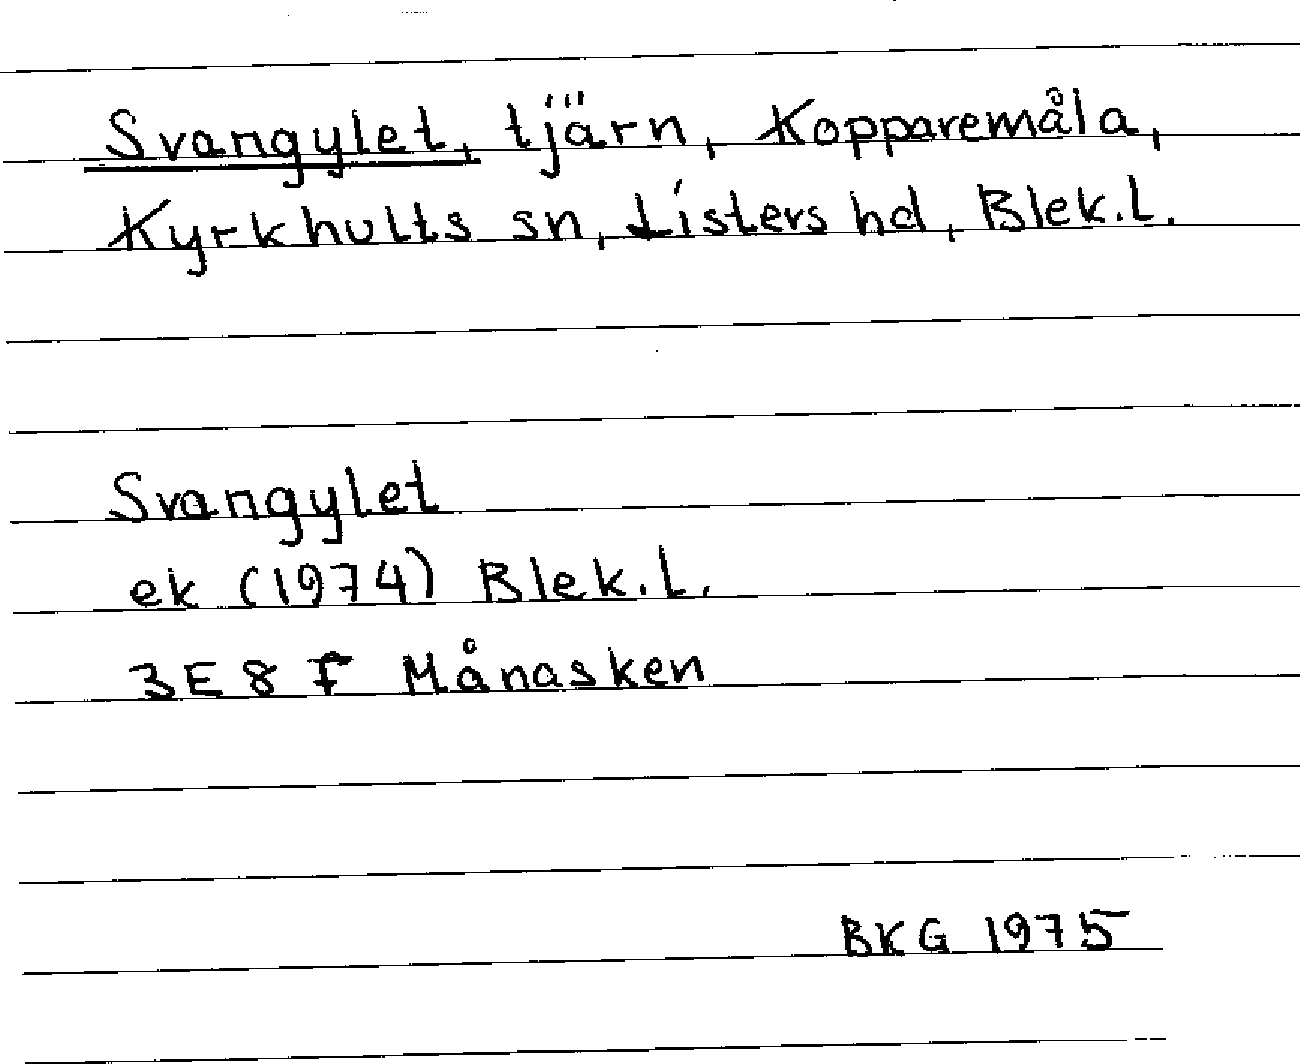 Svangylet, tjärn, Kopparemåla,
Kyrkhults sn, Listers hd, Blek.L.
Svangylet
ek (1974) Blek.L.
3E 8 F Månasken
BKG 1975